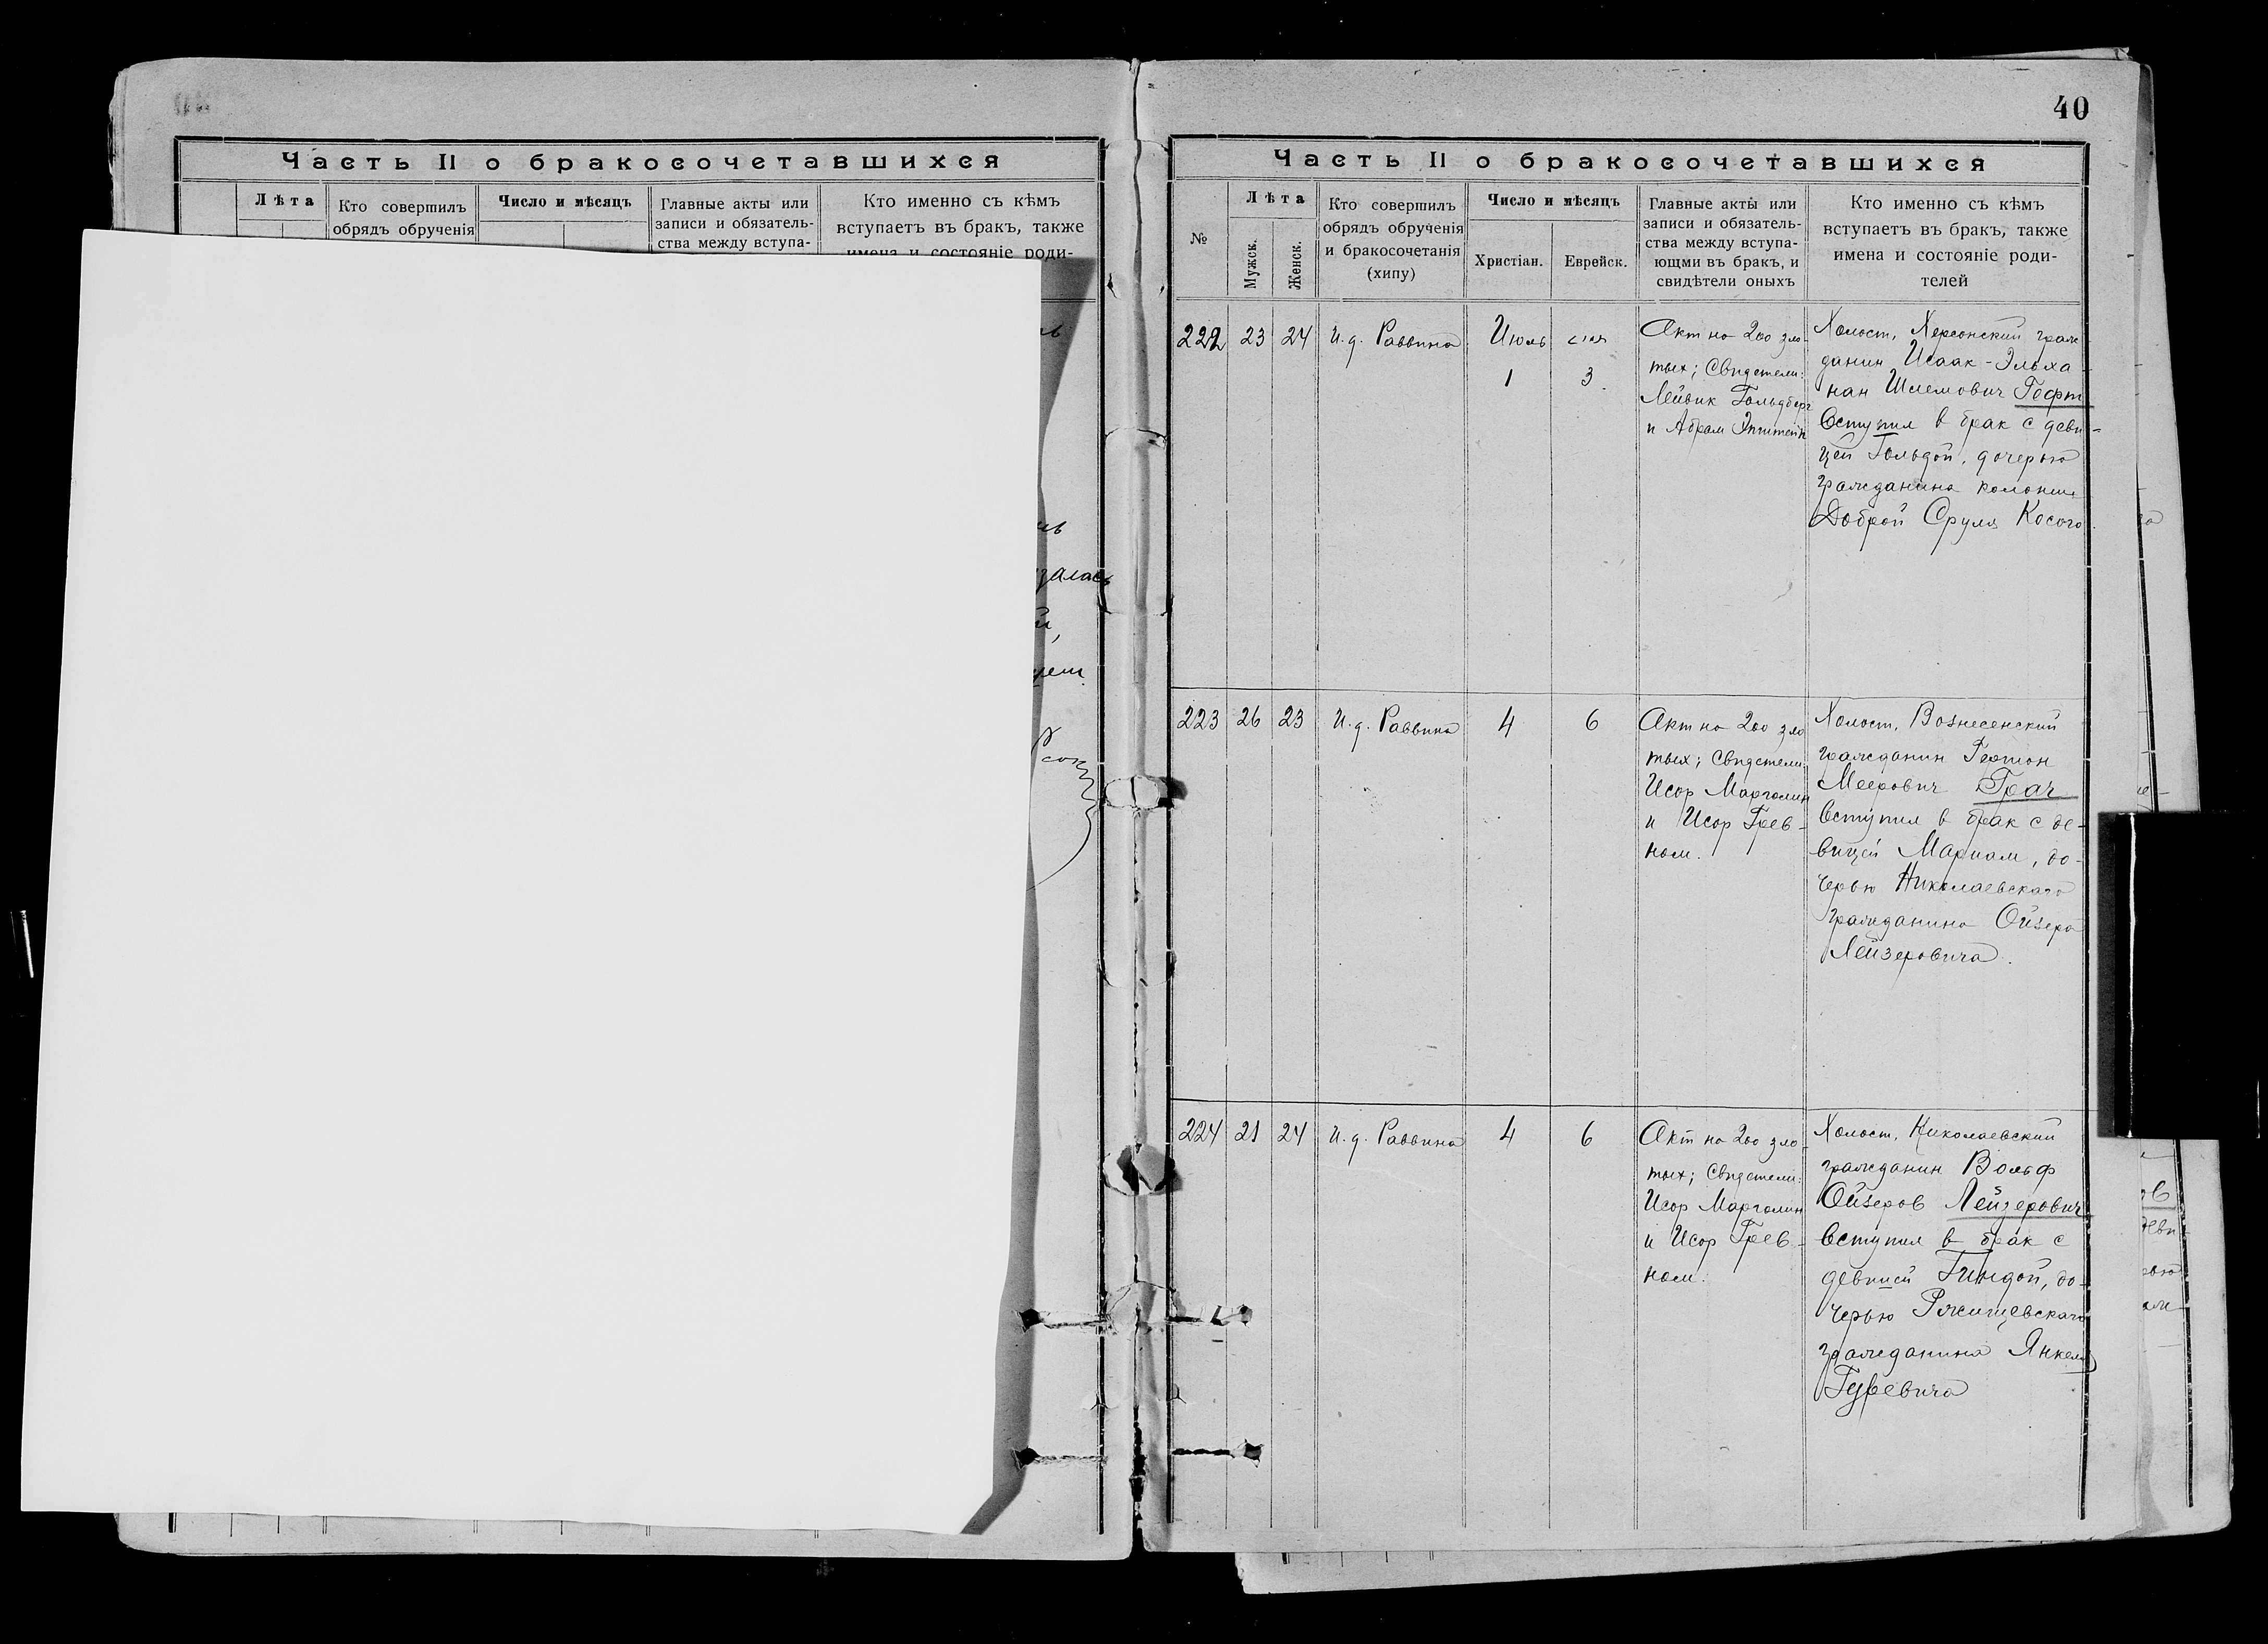 Часть II о бракосочетавшихся
Лѣта
Кто совершилъ
обрядъ обрученія
Число и мѣсяцъ
Главные акты или
записи и обязатель-
ства между вступа-
Кто именно съ кѣмъ
вступаетъ въ бракъ, также
имена и состояніе роди-
залась
40
Часть II о бракосочетавшихся
№
Лѣта
Мужск.
Женск.
Кто совершилъ
обрядъ обрученія
и бракосочетанія
(хипу)
Число и мѣсяцъ
Христіан.
Еврейск.
Главные акты или
записи и обязатель-
ства между вступа-
ющми въ бракъ, и
свидѣтели оныхъ
Кто именно съ кѣмъ
вступаетъ въ бракъ, также
имена и состояніе роди-
телей
222
23
24
И.д. Раввина
Июль
1
3
Акт на 200 зло-
тых; Свидетели:
Лейвик Гольдберг
и Абрам Эпштейн
Холост, Херсонский граж
данин Исаак-Эльха
нан Шлемович Гефт
Вступил в брак с деви-
цей Гольдой, дочерью
гражданина колонии
Доброй Сруля Косого.
223
26
23
И.д. Раввина
4
6
Акт на 200 зло
тых; Свидетели:
Исор Марголин
и Исор Грев-
ном.
Холост, Вознесенский
гражданин
Меерович Грач
Вступил в брак с де-
вицей Мариам, до-
черью Николаевского
гражданина Ойзера
Лейзеровича.
224
21
24
И.д. Раввина
4
6
Акт на 200 зло
тых; Свидетели:
Исор Марголин
и Исор Грев-
ном.
Холост, Николаевский
гражданин Вольф
Ойзеров Лейзерович
Вступил в брак с
девицей Гиндой, до-
черью Ржищевскаго
гражданина Янкеля
Гуревича